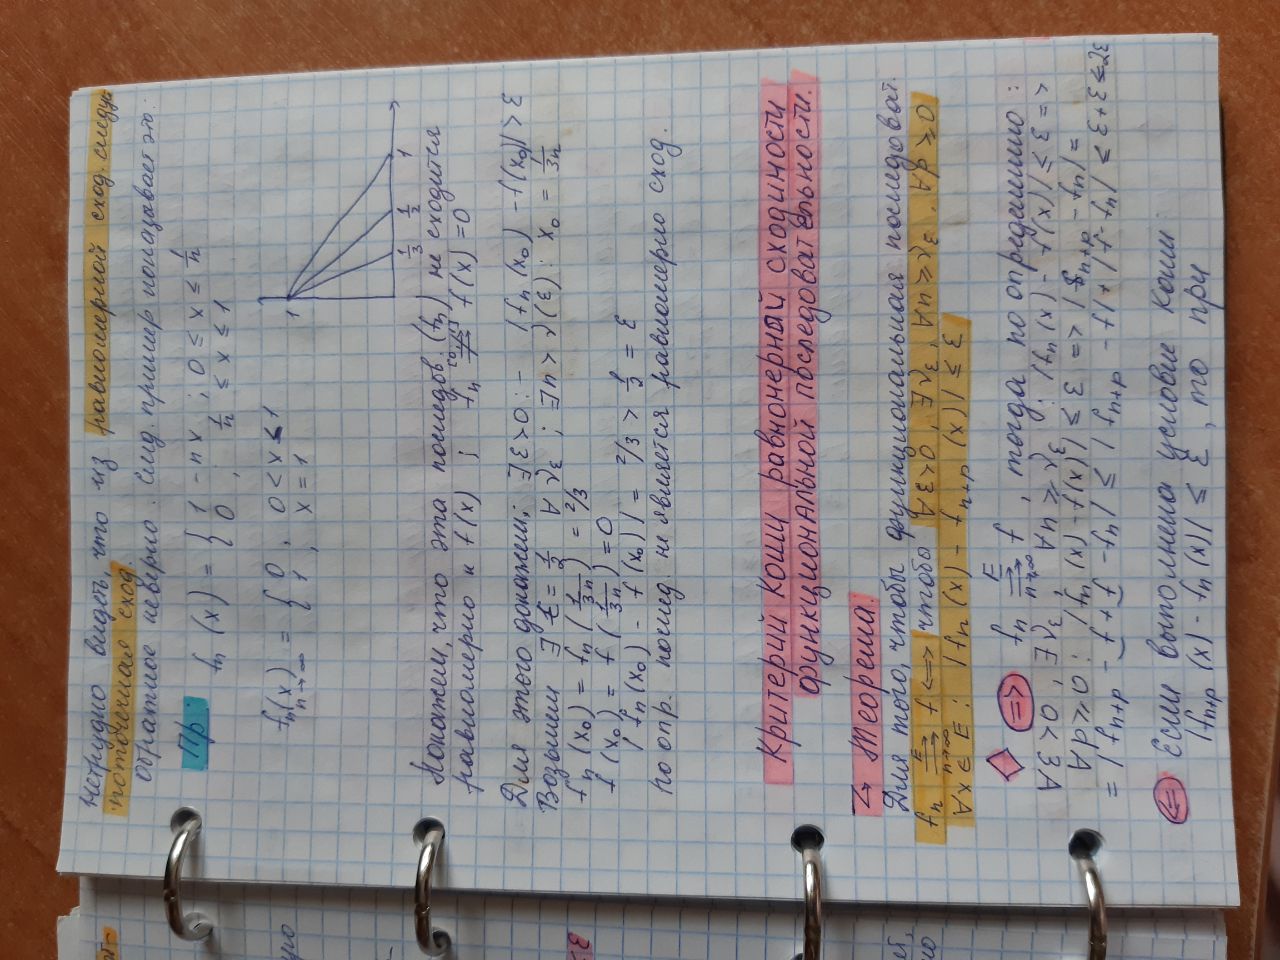 Нетрудно видеть, что из равномерной сход. следует
поточечная сход.
Обратное неверно. След. пример показывает это:
Пр.
fn (x) = { 1 - nx ; 0 ≤ x ≤ 1/n
0 ; 1/n ≤ x ≤ 1
fn(x) = { 0 , 0 < x ≤ 1
n→∞ 1 , x = 1
1
1/3 1/2 1
Покажем, что эта последов. (fn) не сходится
равномерно к f(x) ; fn ⇉̸ [0,1] f(x) = 0
Для этого докажем; ∃ε>0 : - |fn(x₀) - f(x₀)| > ε
Возьмем ∃ ε = 1/2 ∀ γε ; ∃n > γ(ε) : x₀ = 1/3n
fn (x₀) = fn (1/3n) = 2/3
f (x₀) = f (1/3n) = 0
| fn(x₀) - f(x₀) | = 2/3 > 1/2 = ε
По опр. послед. не является равномерно сход.
Критерий Коши равномерный сходимости
функциональной последовательности.
Теорема.
Для того, чтобы функциональная последоват.
fn ⇉ E n→∞ f ⟺ чтобы ∀ε>0, ∃γε, ∀n≥γε, ∀p≥0
∀x∈E : |fn(x) - fn+p(x)| ≤ ε
⟹ fn ⇉ E n→∞ f , тогда по определению :
∀ε>0, ∃γε, ∀n≥γε : |fn(x) - f(x)| ≤ ε =>
∀p≥0 : |fn(x) - f(x)| ≤ ε => |fn+p - fn| =
= |fn+p - f + f - fn| ≤ |fn+p - f| + |f - fn| ≤ ε+ε ≤ 2ε
⟸ Если выполнена условие Коши:
|fn+p (x) - fn (x)| ≤ ε , то при